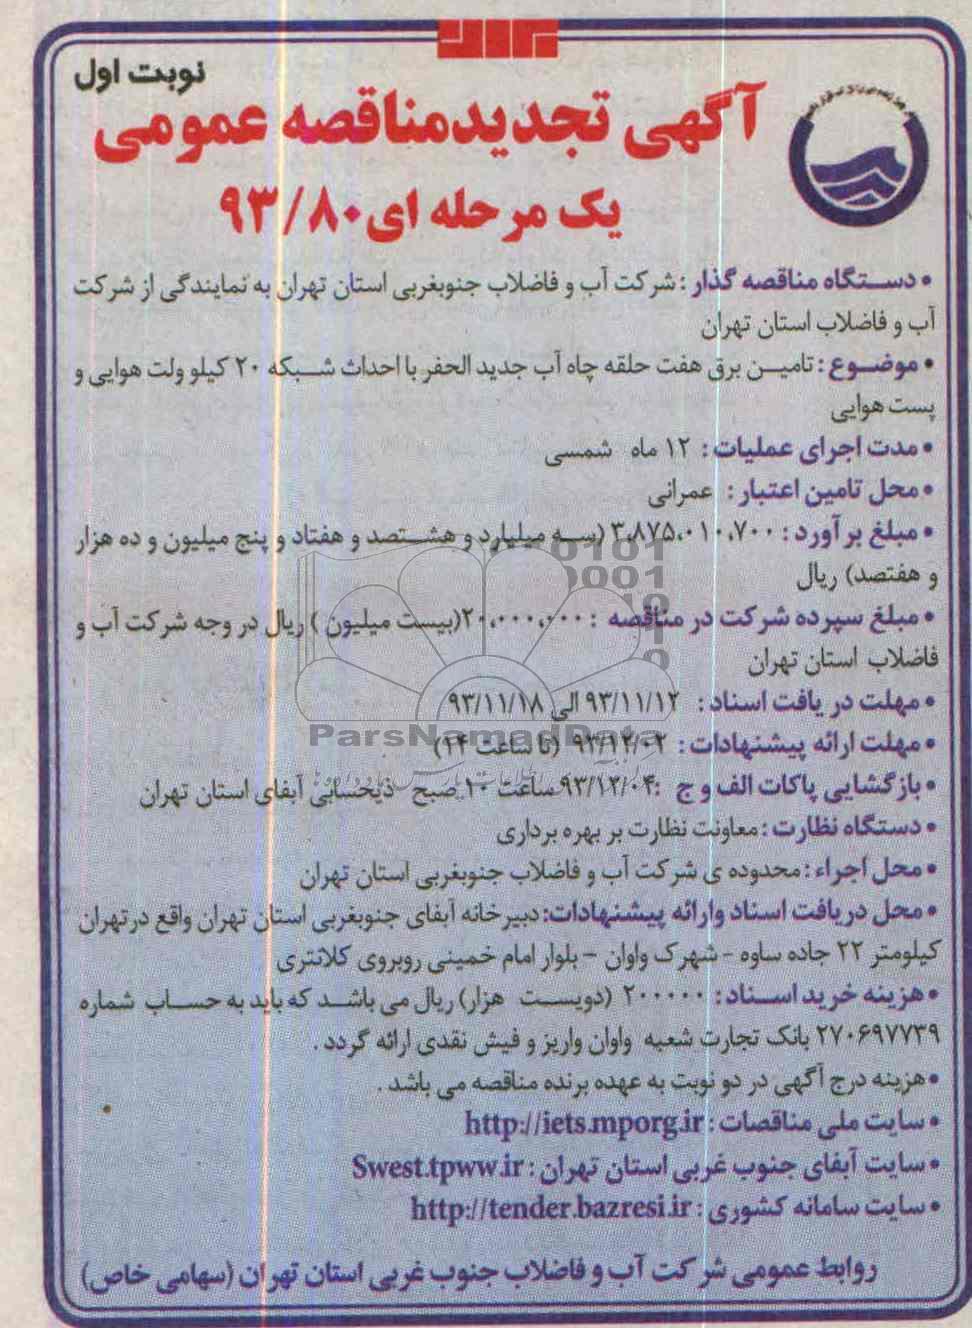 نوبت اول
آگهی تجدیدمناقصه عمومی
یک مرحله ای ۹۳/۸۰
• دستگاه مناقصه گذار : شرکت آب و فاضلاب جنوبغربی استان تهران به نمایندگی از شرکت
آب و فاضلاب استان تهران
• موضوع : تامین برق هفت حلقه چاه آب جدید الحفر با احداث شبکه ۲۰ کیلو ولت هوایی و
پست هوایی
• مدت اجرای عملیات : ۱۲ ماه شمسی
• محل تامین اعتبار : عمرانی
• مبلغ برآورد : ۳،۸۷۵،۰۱۰،۷۰۰ (سه میلیارد و هشتصد و هفتاد و پنج میلیون و ده هزار
و هفتصد) ریال
• مبلغ سپرده شرکت در مناقصه : ۲۰،۰۰۰،۰۰۰(بیست میلیون ) ریال در وجه شرکت آب و
فاضلاب استان تهران
• مهلت دریافت اسناد : ۹۳/۱۱/۱۲ الی ۹۳/۱۱/۱۸
• مهلت ارائه پیشنهادات : ۹۳/۱۲/۰۲ (تا ساعت ۱۴)
ParsNamadData
• بازگشایی پاکات الف و ج :۹۳/۱۲/۰۴ ساعت ۱۰ صبح ذیحسابی آبفای استان تهران
• دستگاه نظارت : معاونت نظارت بر بهره برداری
• محل اجراء : محدوده ی شرکت آب و فاضلاب جنوبغربی استان تهران
• محل دریافت اسناد وارائه پیشنهادات: دبیرخانه آبفای جنوبغربی استان تهران واقع درتهران
کیلومتر ۲۲ جاده ساوه - شهرک واوان - بلوار امام خمینی روبروی کلانتری
• هزینه خرید اسناد : ۲۰۰۰۰۰ (دویست هزار) ریال می باشد که باید به حساب شماره
۲۷۰۶۹۷۷۳۹ بانک تجارت شعبه واوان واریز و فیش نقدی ارائه گردد .
• هزینه درج آگهی در دو نوبت به عهده برنده مناقصه می باشد .
• سایت ملی مناقصات : http://iets.mporg.ir
• سایت آبفای جنوب غربی استان تهران : Swest.tpww.ir
• سایت سامانه کشوری : http://tender.bazresi.ir
روابط عمومی شرکت آب و فاضلاب جنوب غربی استان تهران (سهامی خاص)